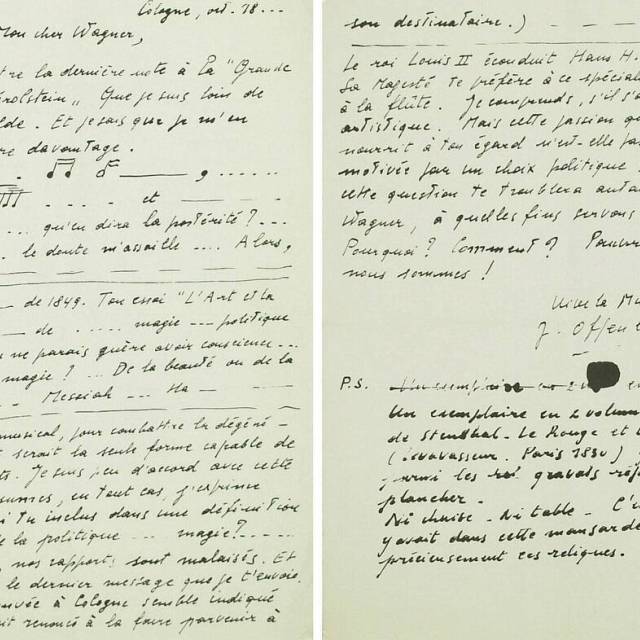 Cologne, oct. 18...
Mon cher Wagner,
tre la dernière note à La "Grande
érolstein„ Que je suis loin de
lde. Et je sais que je m'en
re davantage.
, ......
..... et
... qu'en dira la postérité ?...
... le doute m'assaille .... Alors,
de 1849. Ton essai "L'Art et la
de ..... magie --- politique
u ne parais guère avoir conscience...
magie ? ... De la beauté ou de la
Messiah Ha
musical, pour combattre la dégéné-
t serait la seule forme capable de
ts. Je suis peu d'accord avec cette
, en tout cas, j'exprime
i tu inclus dans une définition
e la politique ... magie ?....
, nos rapports sont malaisés. Et
le dernier message que je t'envoie.
uvée à Cologne semble indiqué
it renoncé à la faire parvenir à
son destinataire.)
Le roi Louis II éconduit Hans H.
Sa Majesté te préfère à ce spécial
à la flûte. Je comprends, s'il s'a
artistique. Mais cette passion qu
nourrit à ton égard n'est-elle pas
motivée par un choix politique
cette question te troublera auta
Wagner, à quelles fins servons
Pourquoi ? Comment ? Pauvr
nous sommes !
Vive la Mu
J. Offen
P.S. Un exemplaire en 2
Un exemplaire en 2 volum
de Stendhal. Le Rouge et l
(Levavasseur. Paris 1830)
parmi les gravats
plancher.
Ni chaise. Ni table. C'
y avait dans cette mansarde
précieusement ces reliques.